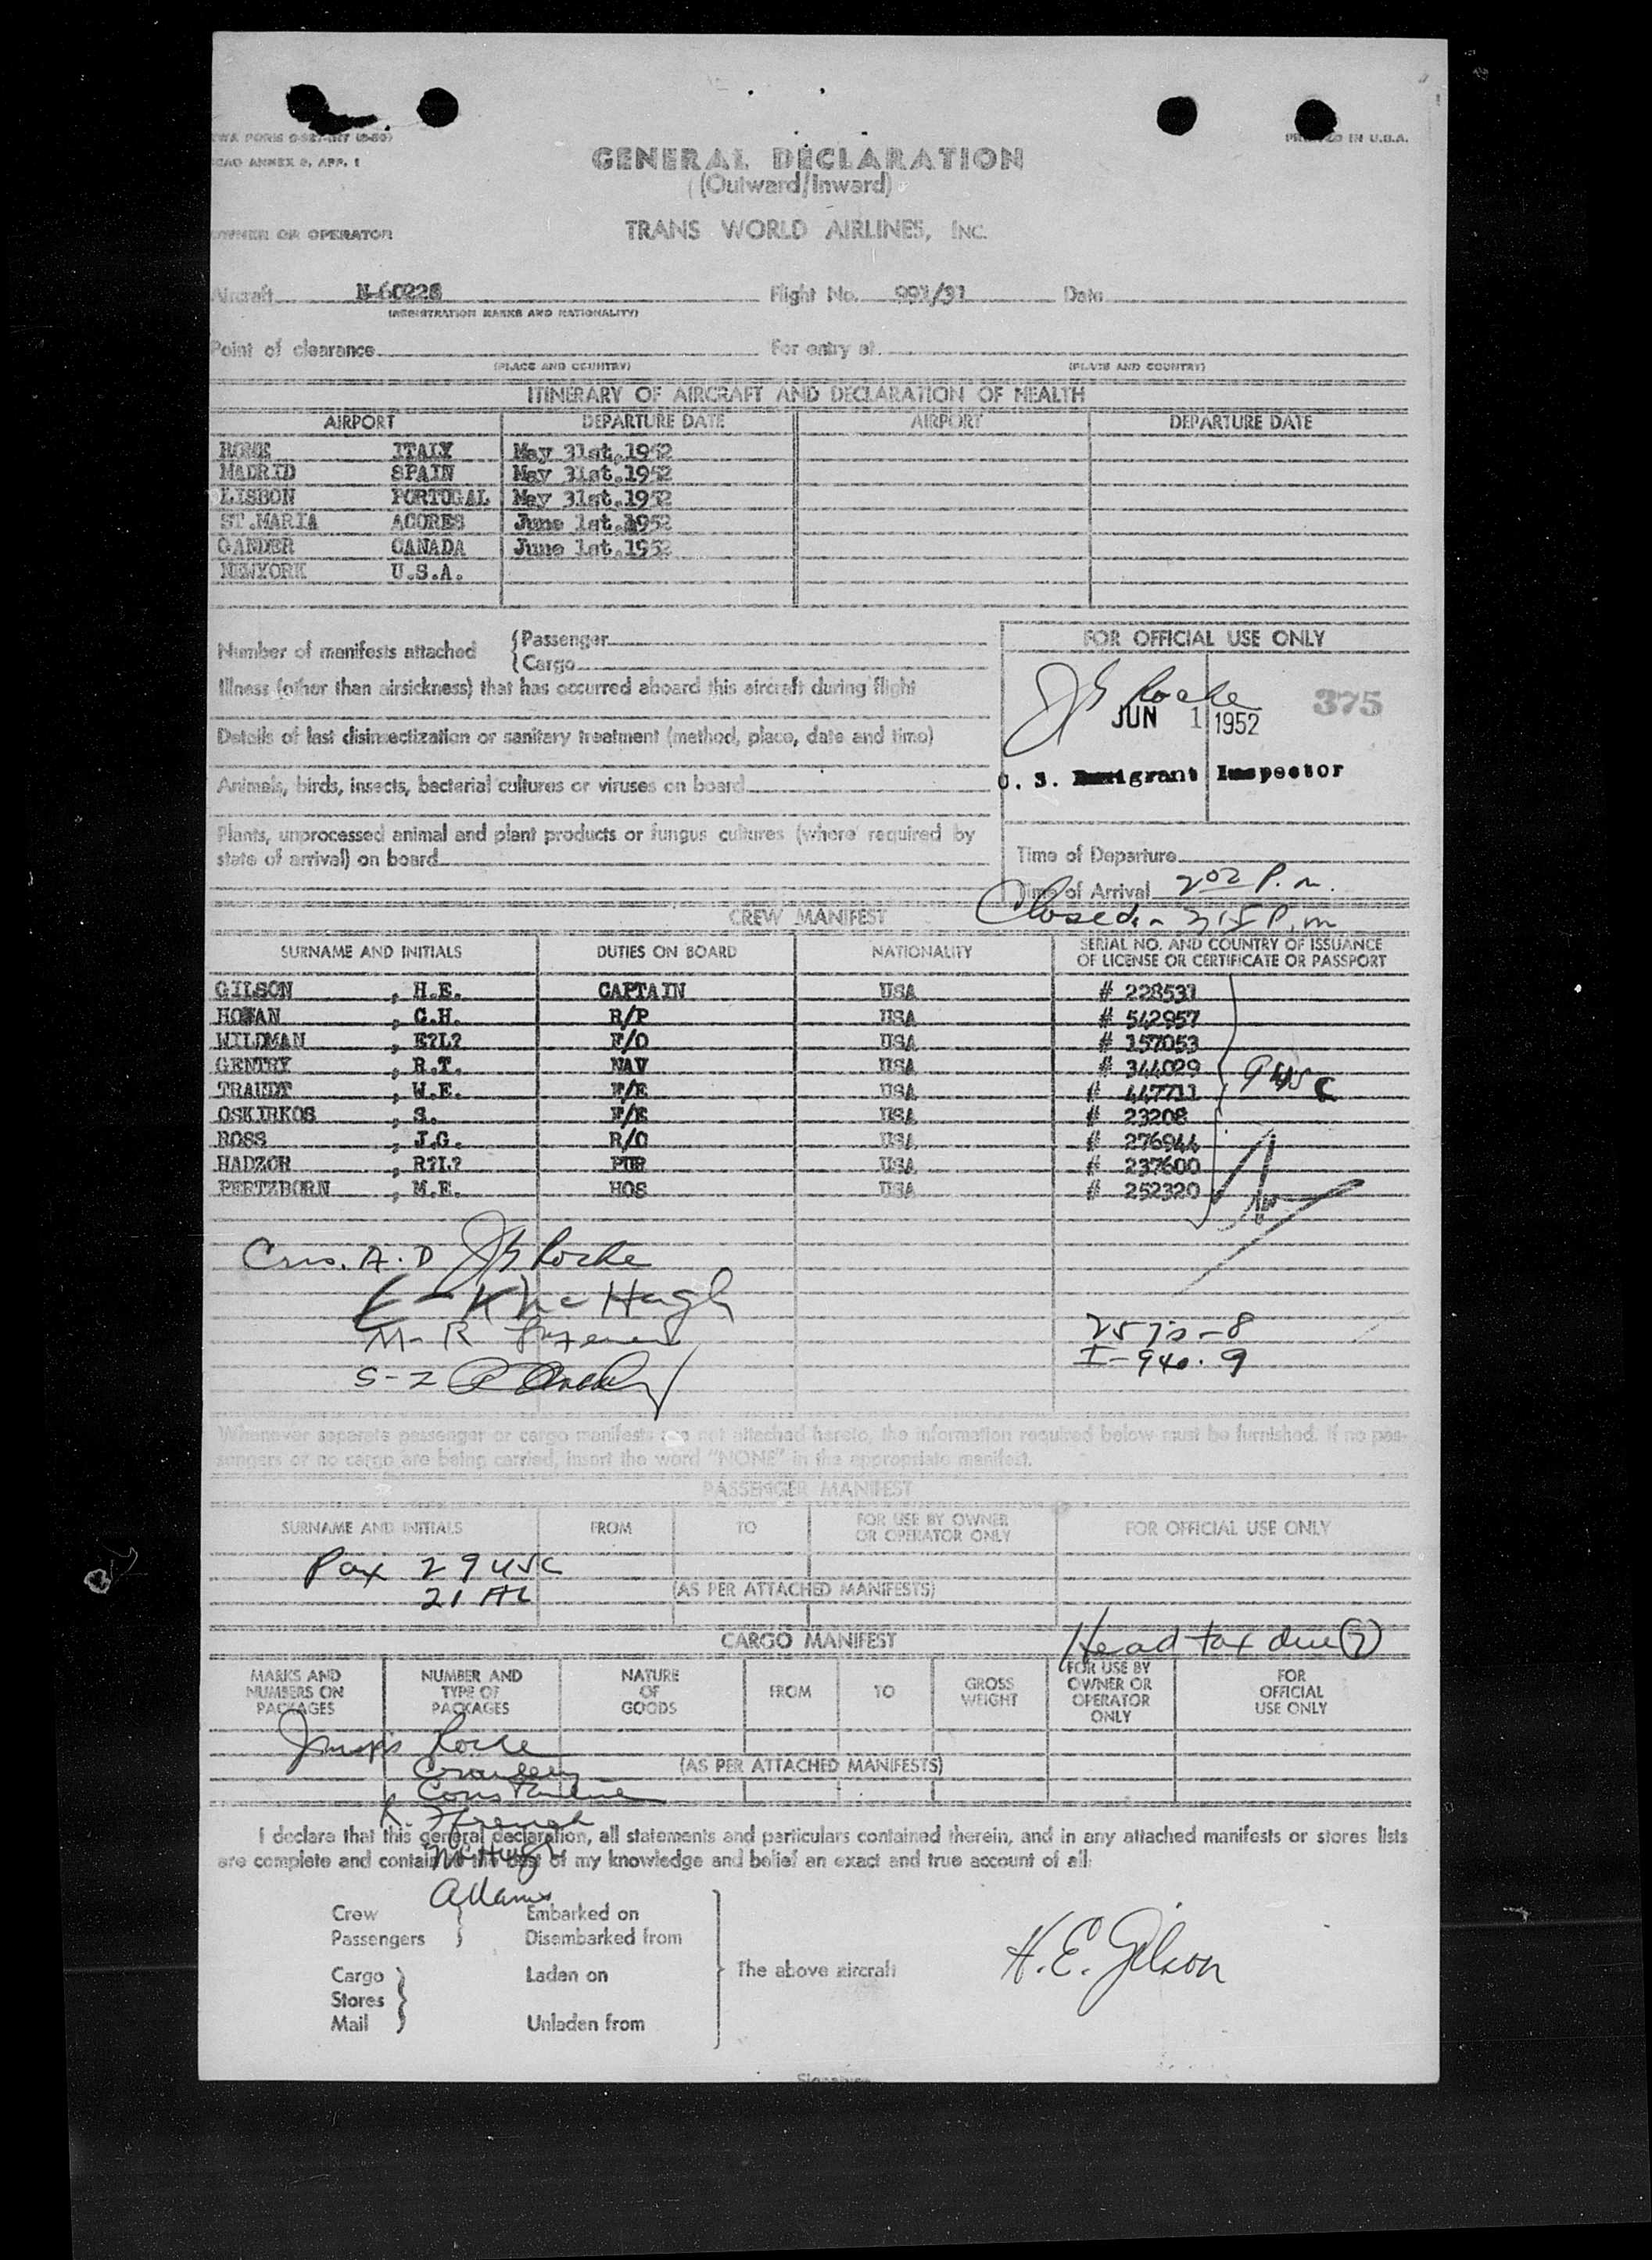 TWA FORM
ICAO ANNEX 9, APP. 1
PRINTED IN U.S.A.
GENERAL DECLARATION
(Outward/Inward)
OWNER OR OPERATOR
TRANS WORLD AIRLINES, INC.
Aircraft N-60226 Flight No. 991/31 Date
(REGISTRATION MARKS AND NATIONALITY)
Point of clearance For entry at
(PLACE AND COUNTRY) (PLACE AND COUNTRY)
ITINERARY OF AIRCRAFT AND DECLARATION OF HEALTH
AIRPORT DEPARTURE DATE AIRPORT DEPARTURE DATE
ROME ITALY May 31st.1952
MADRID SPAIN May 31st.1952
LISBON PORTUGAL May 31st.1952
ST.MARIA ACORES June 1st.1952
GANDER CANADA June 1st.1952
NEWYORK U.S.A.
Number of manifests attached {Passenger
{Cargo
Illness (other than airsickness) that has occurred aboard this aircraft during flight
Details of last disinsectization or sanitary treatment (method, place, date and time)
Animals, birds, insects, bacterial cultures or viruses on board
Plants, unprocessed animal and plant products or fungus cultures (where required by
state of arrival) on board
FOR OFFICIAL USE ONLY
Roche
375
JUN 1 1952
U. S. Immigrant Inspector
Time of Departure
Time of Arrival 2 02 P.m.
Closed - 3:15 P.m
CREW MANIFEST
SURNAME AND INITIALS DUTIES ON BOARD NATIONALITY SERIAL NO. AND COUNTRY OF ISSUANCE
OF LICENSE OR CERTIFICATE OR PASSPORT
GILSON , H.E. CAPTAIN USA # 228531
HOWAN , C.H. R/P USA # 542957
WILDMAN , E?L? F/O USA # 157053
GENTRY , R.T. NAV USA # 344029
TRAUDT , W.E. F/E USA # 447711
OSKIRKOS , S. F/E USA # 23208
ROSS , J.G. R/O USA # 276944
HADZOR , R?L? PUR USA # 237600
PERTZBORN , M.E. HOS USA # 252320
9 USC
Crs. A.D Roche
K McHugh
M- R
S-2
I-940. 9
Whenever separate passenger or cargo manifests are not attached hereto, the information required below must be furnished. If no pas-
sengers or no cargo are being carried, insert the word "NONE" in the appropriate manifest.
PASSENGER MANIFEST
SURNAME AND INITIALS FROM TO FOR USE BY OWNER
OR OPERATOR ONLY FOR OFFICIAL USE ONLY
Pax 29 USC
21 AL
(AS PER ATTACHED MANIFESTS)
CARGO MANIFEST
Head tax due (7)
MARKS AND
NUMBERS ON
PACKAGES NUMBER AND
TYPE OF
PACKAGES NATURE
OF
GOODS FROM TO GROSS
WEIGHT FOR USE BY
OWNER OR
OPERATOR
ONLY FOR
OFFICIAL
USE ONLY
Insps Roche
(AS PER ATTACHED MANIFESTS)
Constantine
McHugh
Adams
I declare that this general declaration, all statements and particulars contained therein, and in any attached manifests or stores lists
are complete and contain to the best of my knowledge and belief an exact and true account of all:
Crew } Embarked on
Passengers } Disembarked from
Cargo } Laden on
Stores }
Mail } Unladen from
The above aircraft
H. E. Gilson
Signature